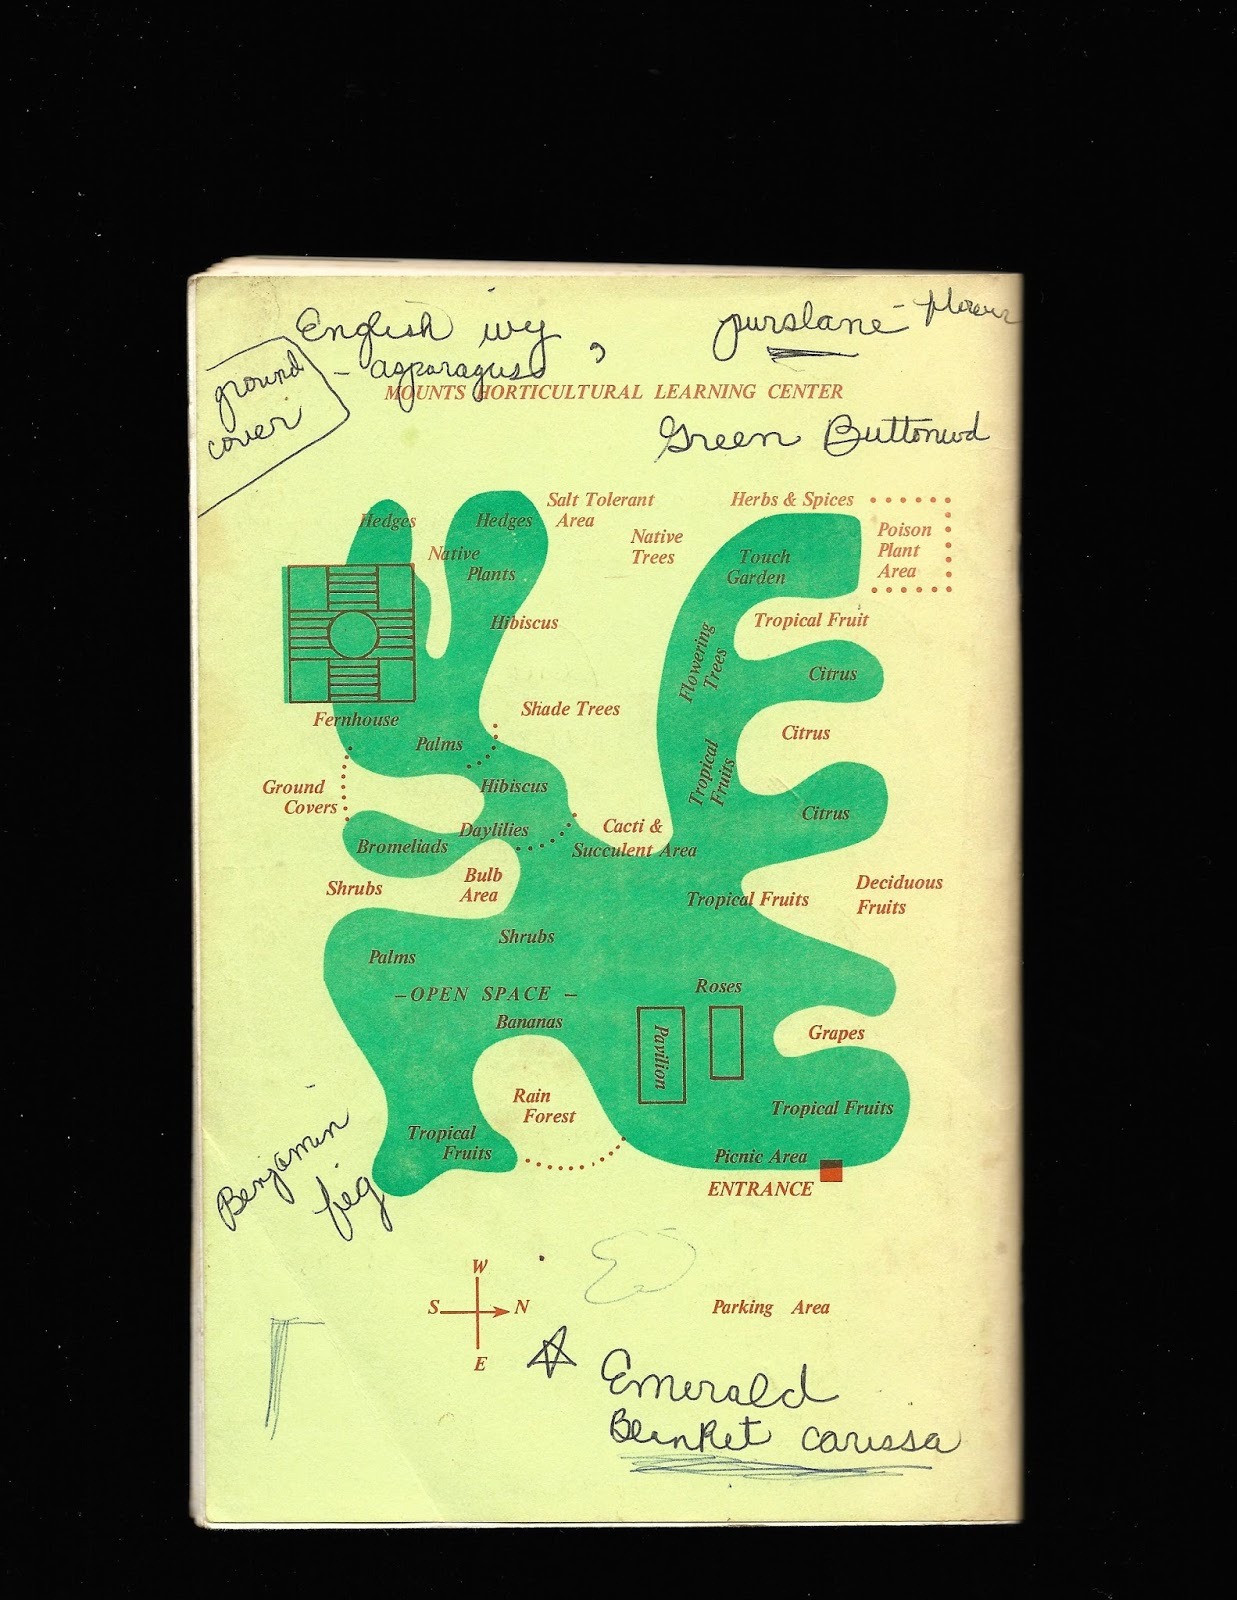 English ivy,
purslane - flower
- asparagus
ground
cover
MOUNTS HORTICULTURAL LEARNING CENTER
Green Buttonwd
Salt Tolerant
Area
Herbs & Spices
Hedges
Hedges
Native
Trees
Poison
Plant
Area
Native
Plants
Touch
Garden
Hibiscus
Tropical Fruit
Flowering
Trees
Citrus
Fernhouse
Shade Trees
Palms
Citrus
Tropical
Fruits
Ground
Covers
Hibiscus
Citrus
Daylilies
Cacti &
Succulent Area
Bromeliads
Shrubs
Bulb
Area
Tropical Fruits
Deciduous
Fruits
Shrubs
Palms
– OPEN SPACE –
Roses
Bananas
Pavilion
Grapes
Rain
Forest
Tropical Fruits
Tropical
Fruits
Picnic Area
ENTRANCE
Benjamin
fig
W
S
N
E
Parking Area
Emerald
Blanket carissa